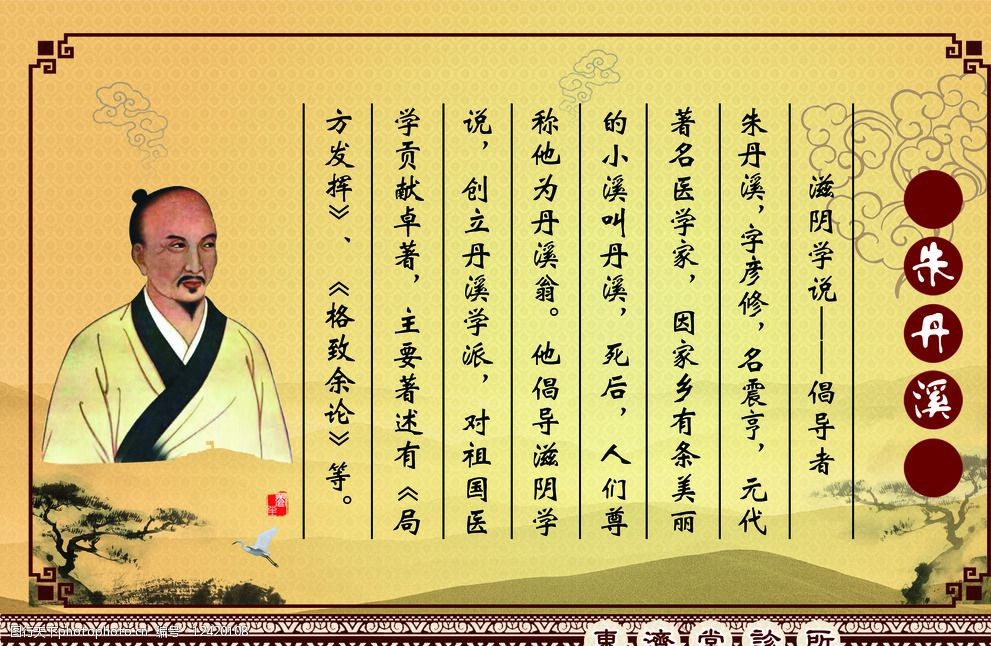 朱丹溪
滋阴学说——倡导者
朱丹溪，字彦修，名震亨，元代
著名医学家，因家乡有条美丽
的小溪叫丹溪，死后，人们尊
称他为丹溪翁。他倡导滋阴学
说，创立丹溪学派，对祖国医
学贡献卓著，主要著述有《局
方发挥》、《格致余论》等。
東濟堂診所
图行天下 photophoto.cn 编号：12420108